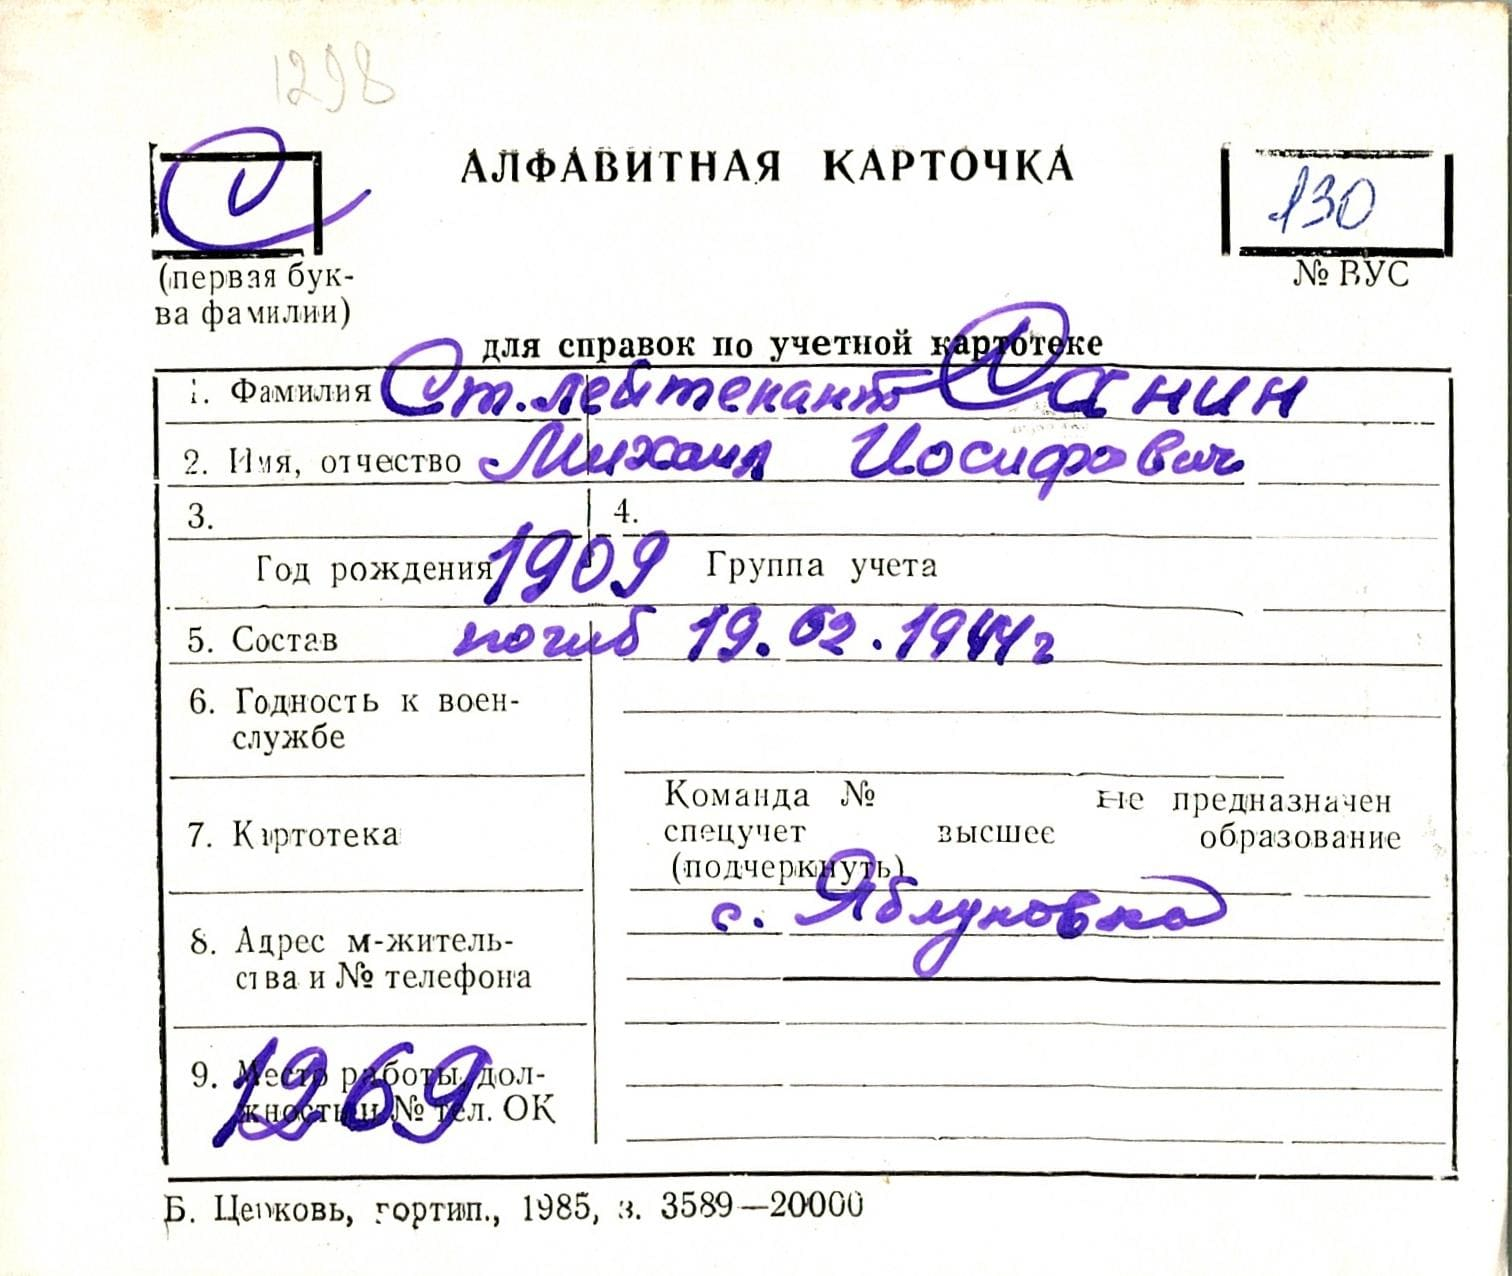 1298
С
АЛФАВИТНАЯ КАРТОЧКА
130
(первая бук-
ва фамилии)
№ ВУС
для справок по учетной картотеке
1. Фамилия Ст. лейтенант Санин
2. Имя, отчество Михаил Иосифович
3. 4.
Год рождения 1909 Группа учета
5. Состав погиб 19.02.1944г
6. Годность к воен-
службе
Команда № не предназначен
7. Картотека спецучет высшее образование
(подчеркнуть)
с. Яблуновка
8. Адрес м-житель-
ства и № телефона
9. Место работы, дол-
жность и № тел. ОК
1269
Б. Церковь, гортип., 1985, з. 3589—20000